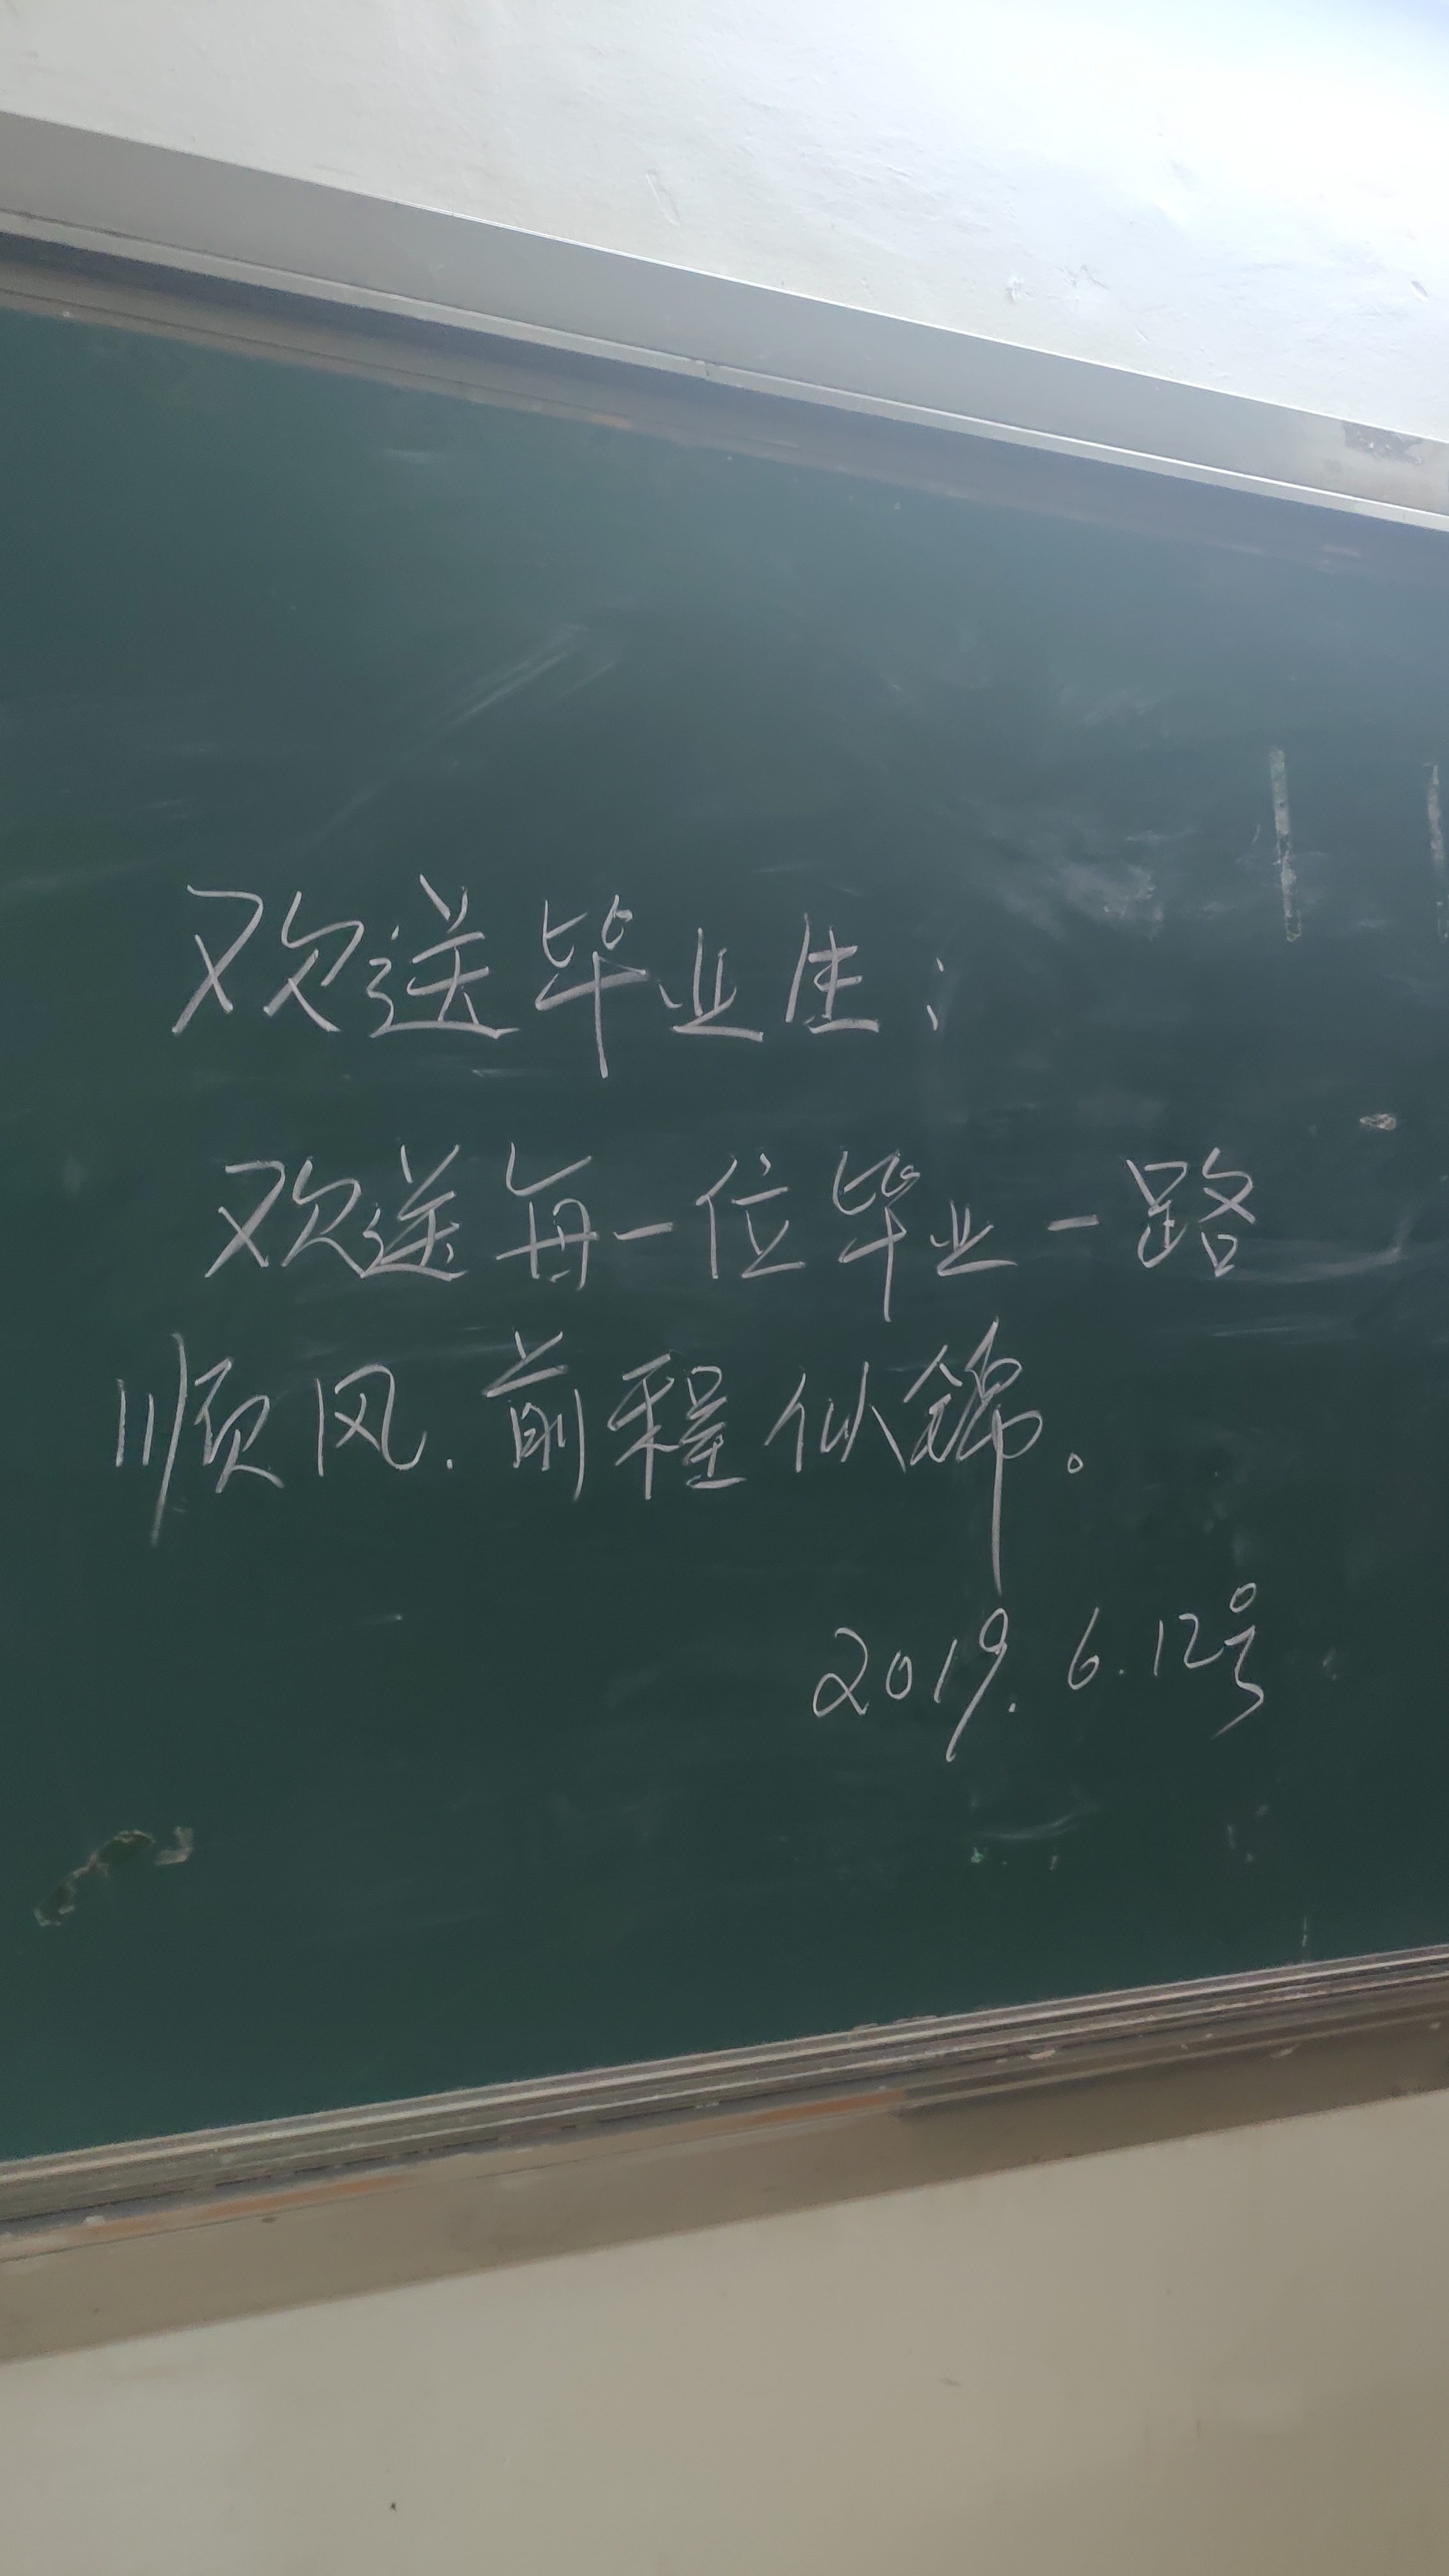 欢送毕业生：
欢送每一位毕业一路
顺风.前程似锦。
2019.6.12号